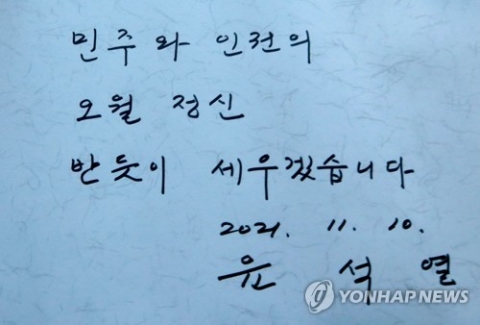 민주와 인권의
오월 정신
반듯이 세우겠습니다
2021. 11. 10.
윤석열
YONHAP NEWS